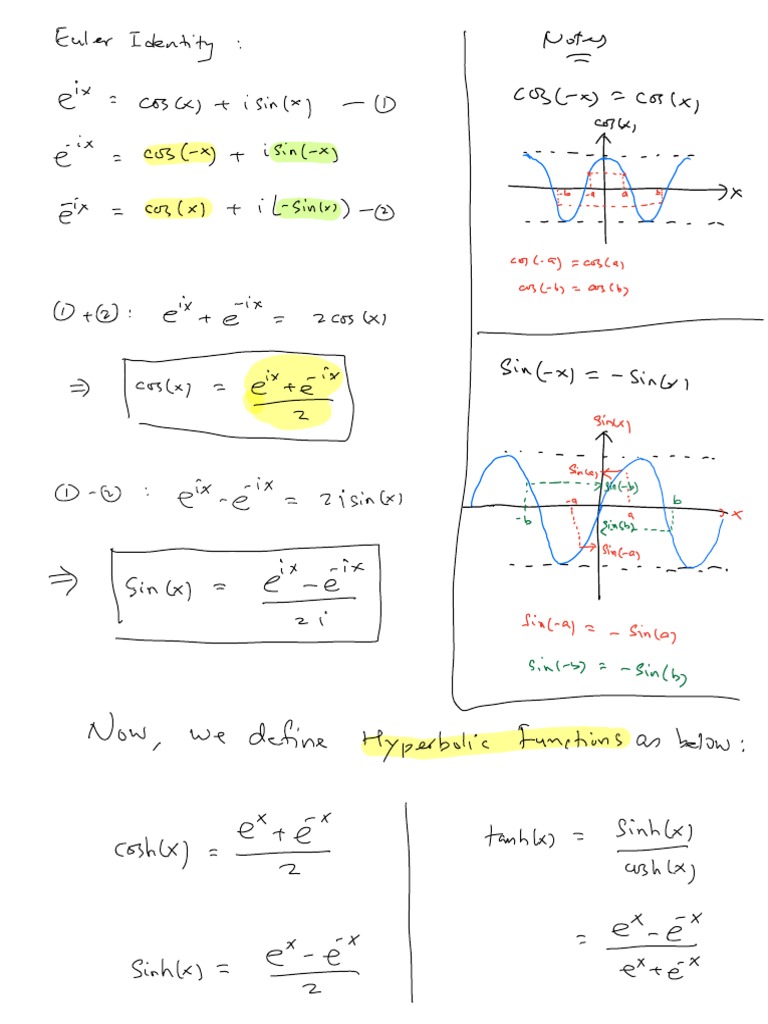 Euler Identity :
e^{ix} = cos(x) + i sin(x) — ①
e^{-ix} = cos(-x) + i sin(-x)
e^{-ix} = cos(x) + i (-sin(x)) — ②
① + ② : e^{ix} + e^{-ix} = 2 cos(x)
⇒ cos(x) = (e^{ix} + e^{-ix}) / 2
① - ② : e^{ix} - e^{-ix} = 2 i sin(x)
⇒ Sin(x) = (e^{ix} - e^{-ix}) / 2i
Notes
cos(-x) = cos(x)
cos(x)
-b -a a b x
cos(-a) = cos(a)
cos(-b) = cos(b)
Sin(-x) = - Sin(x)
Sin(x)
Sin(a) sin(-b)
-b -a a b x
Sin(b)
Sin(-a)
Sin(-a) = - Sin(a)
Sin(-b) = - Sin(b)
Now, we define Hyperbolic Functions as below :
cosh(x) = (e^x + e^{-x}) / 2
Sinh(x) = (e^x - e^{-x}) / 2
tanh(x) = Sinh(x) / cosh(x)
= (e^x - e^{-x}) / (e^x + e^{-x})